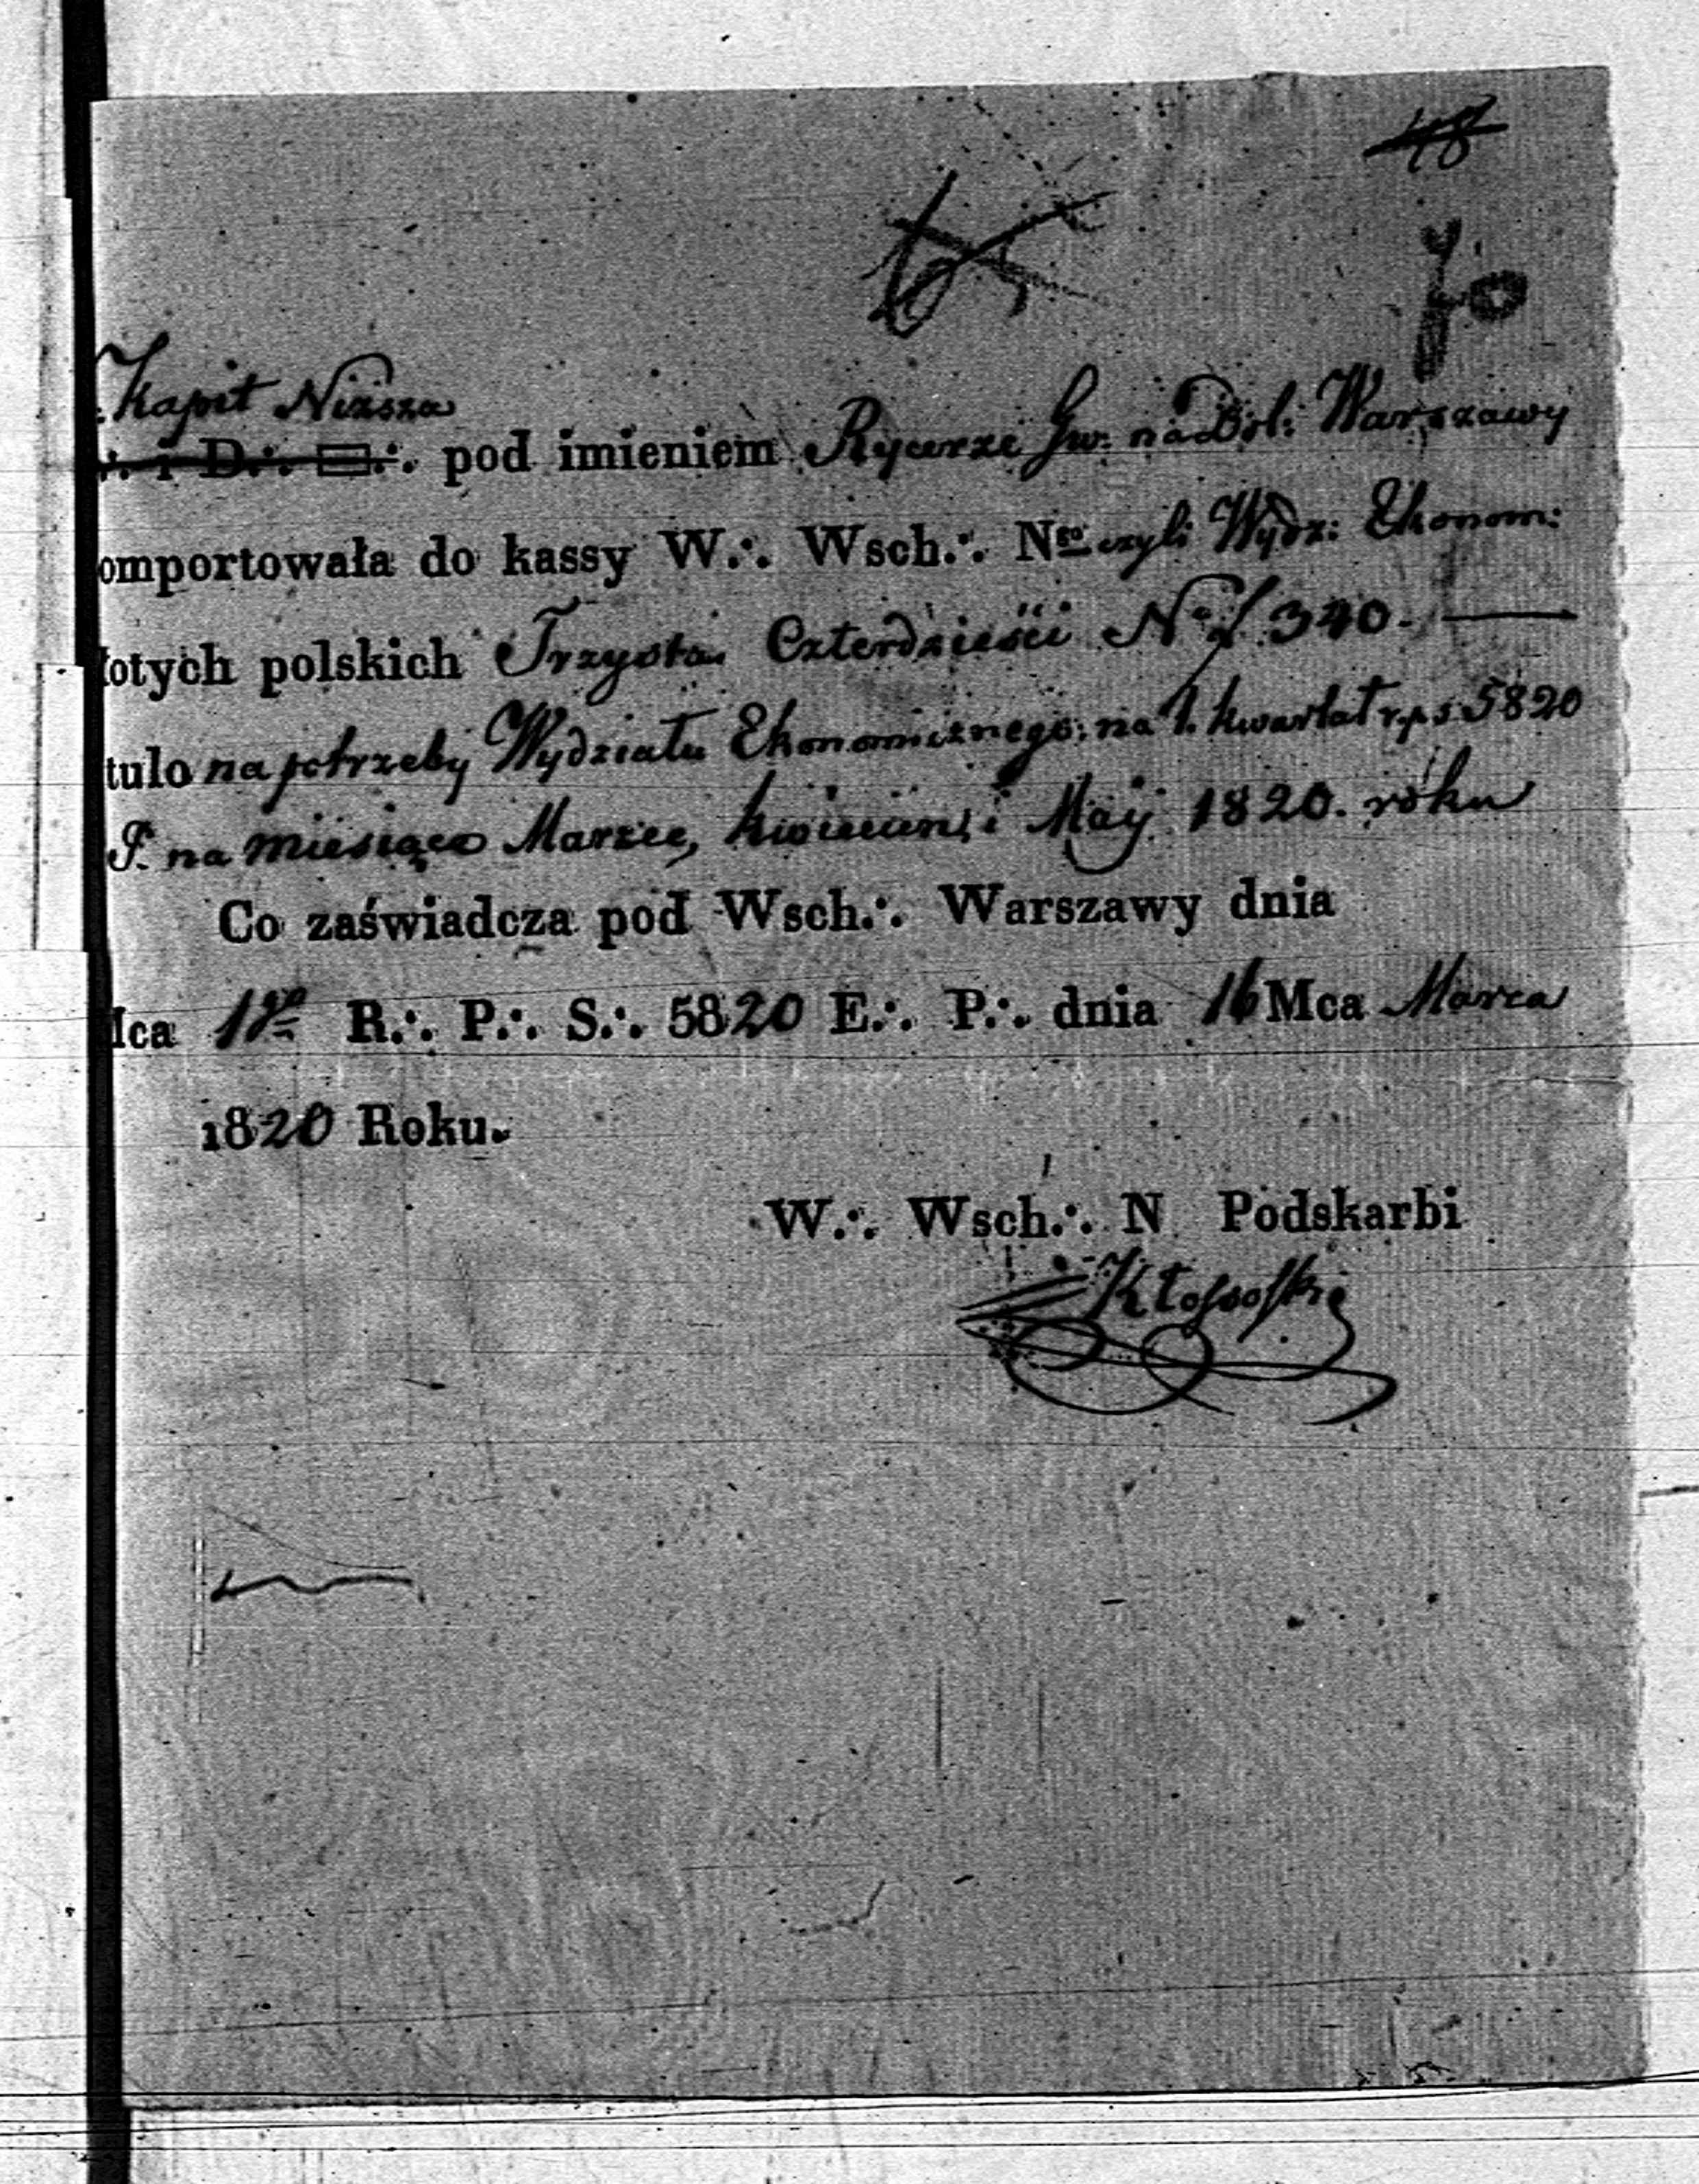 48
70
Kapit Niższa
∴ i D∴ ▭∴ pod imieniem Rycerze Gw: na Dol: Warszawy
omportowała do kassy W∴ Wsch∴ Nro czyli Wydz: Ekonom:
łotych polskich Trzysta Czterdzieści No f 340. —
tulo na potrzeby Wydziału Ekonomicznego: na 1. kwartał r. p s 5820
P. na miesiące Marzec, kwiecien, i May 1820. roku
Co zaświadcza pod Wsch∴ Warszawy dnia
Mca 1go R∴ P∴ S∴ 5820 E∴ P∴ dnia 16 Mca Marca
1820 Roku.
W∴ Wsch∴ N Podskarbi
Kłossoski